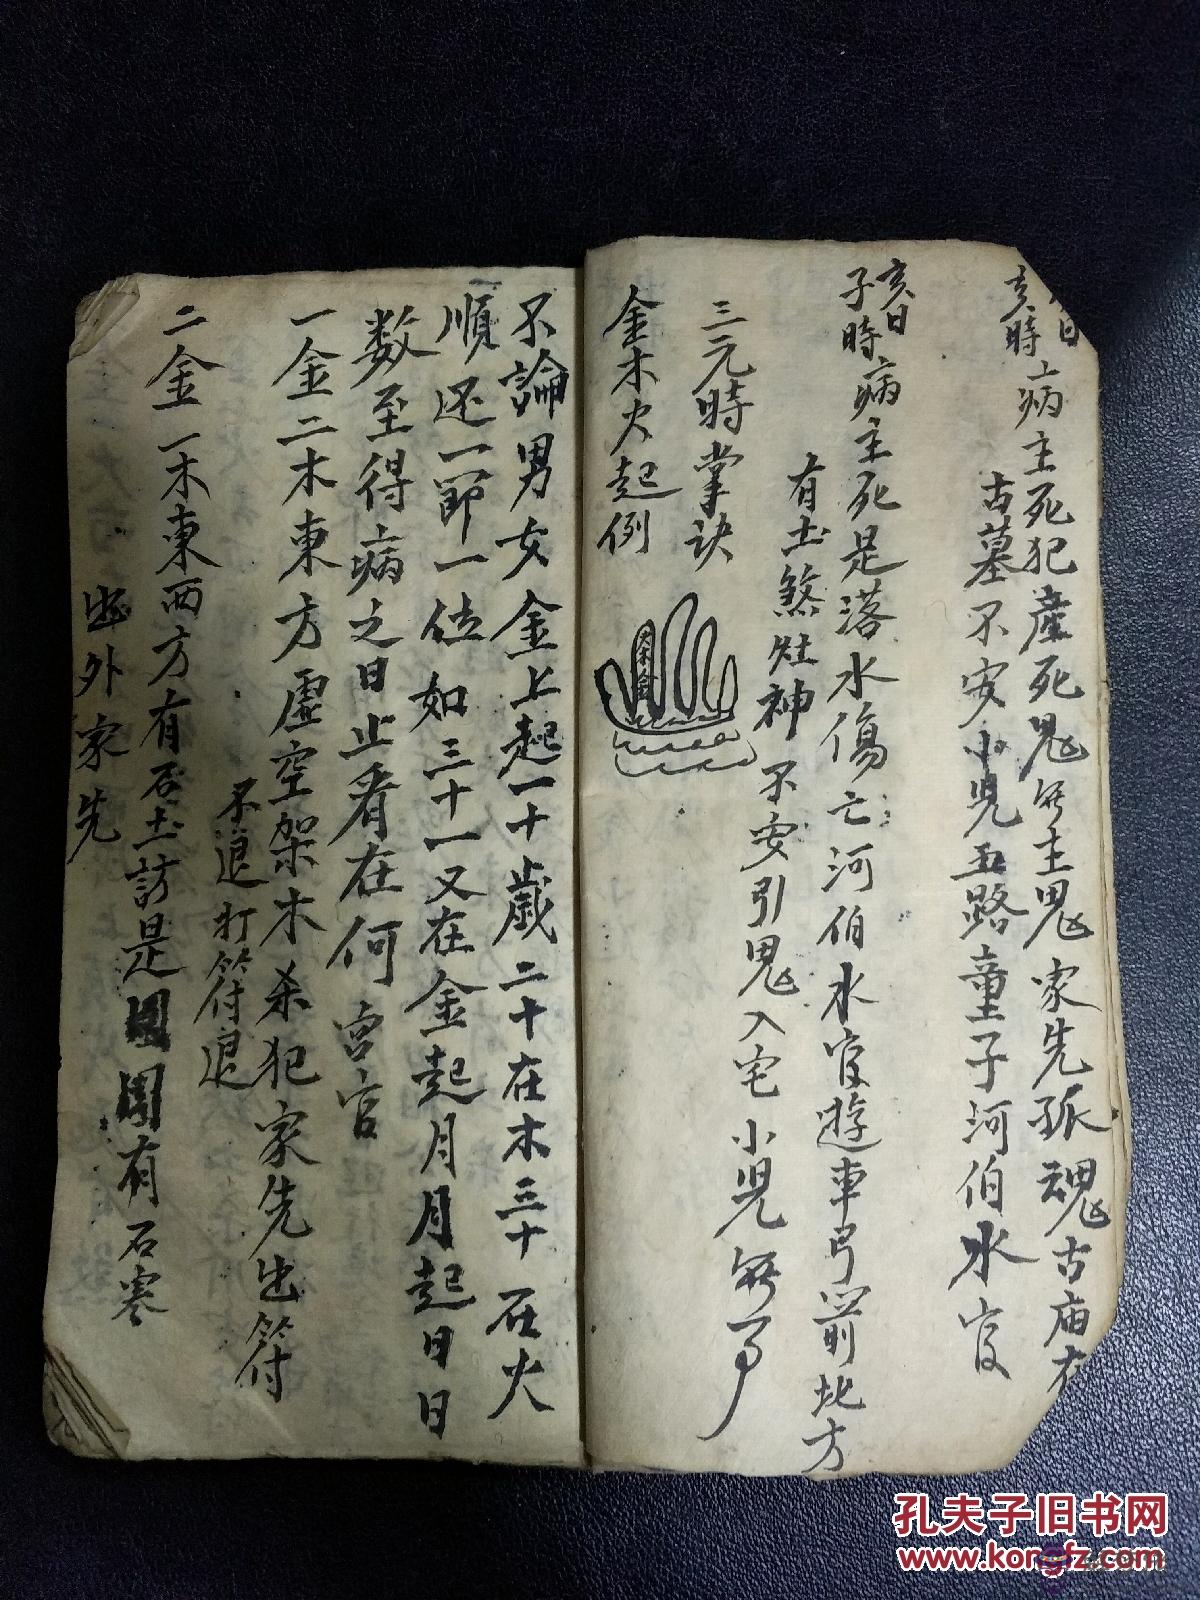 亥時病主死犯產死鬼無主鬼家先孤魂古庙
古墓不安小児五路童子河伯水官
亥日
子時病主死是落水傷亡河伯水官遊車弓箭北方
有土煞灶神不安引鬼入宅小児無事
三元時掌訣
金木火起例
火木金
不論男女金上起一十歲二十在木三十在火
順还一節一位如三十一又在金起月月起日日
数至得病之日止看在何宮官
一金二木東方虚空架木杀犯家先出符
不退打符退
二金一木東西方有石土訪是有石寒
出外家先
孔夫子旧书网
www.kongfz.com